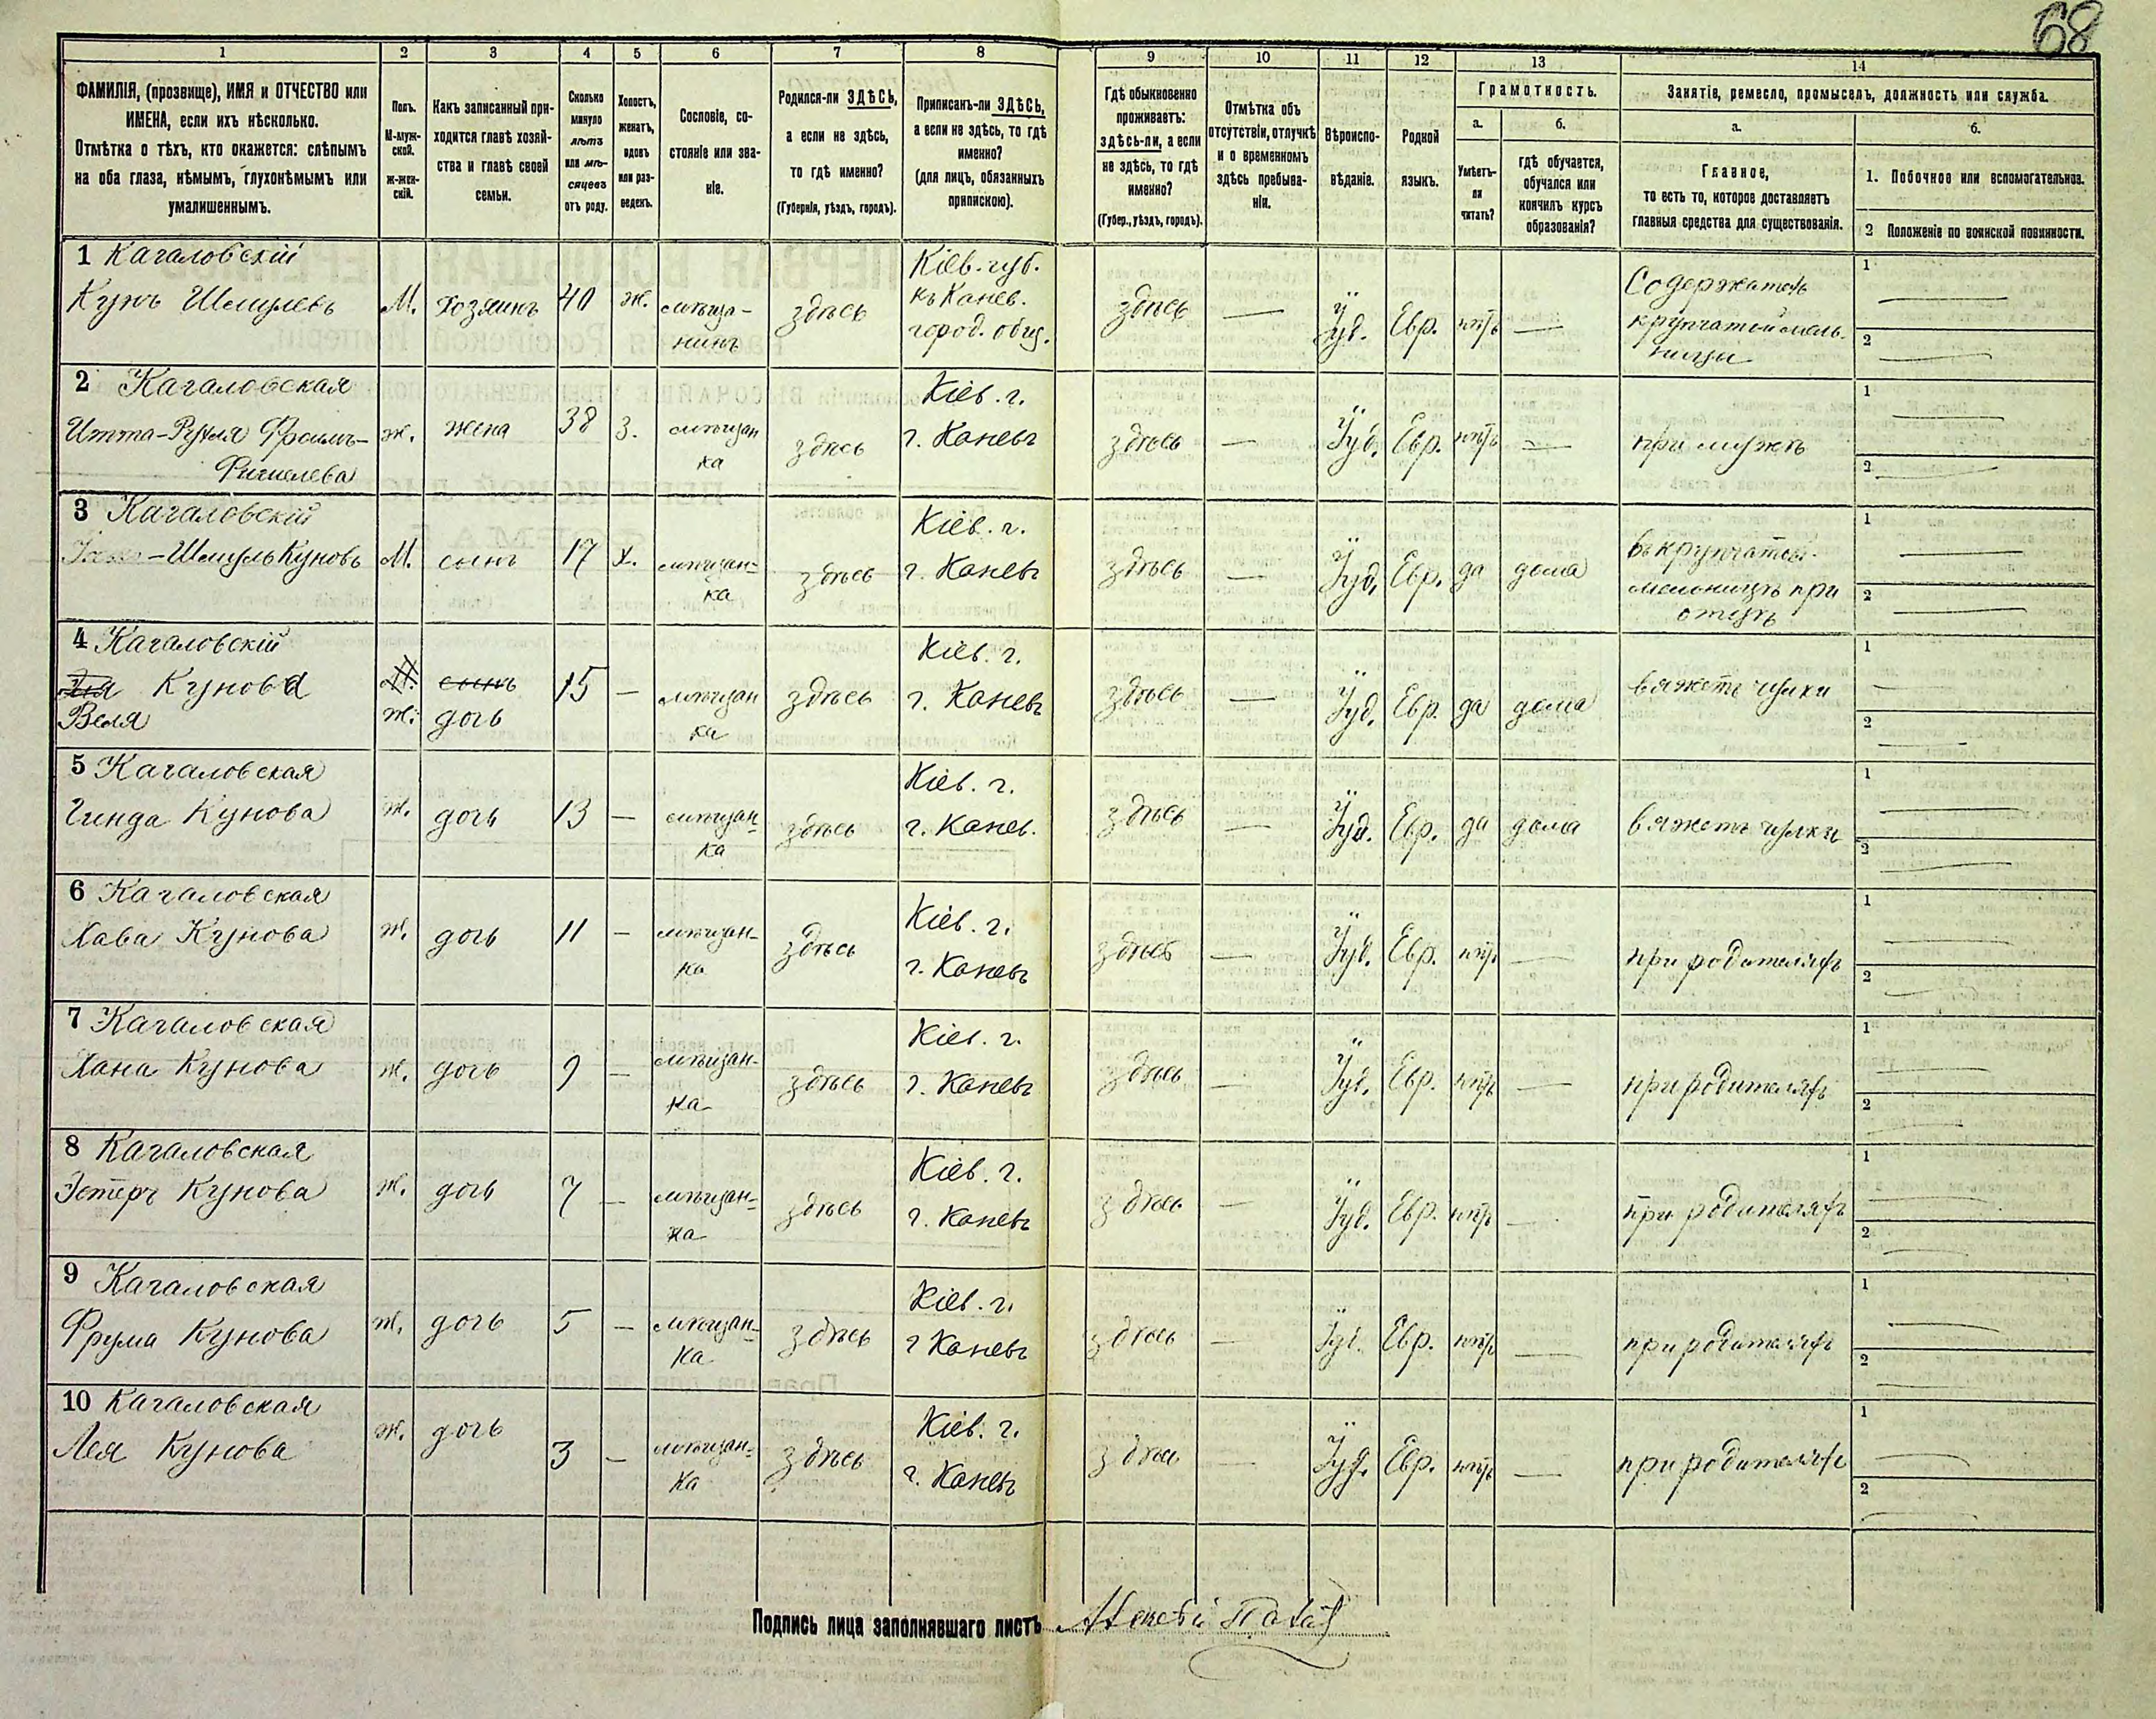 68
1
2
3
4
5
6
7
8
9
10
11
12
13
14
ФАМИЛІЯ, (прозвище), ИМЯ и ОТЧЕСТВО или
ИМЕНА, если ихъ нѣсколько.
Отмѣтка о тѣхъ, кто окажется: слѣпымъ
на оба глаза, нѣмымъ, глухонѣмымъ или
умалишеннымъ.
Полъ.
М-муж-
ской.
ж-жен-
скій.
Какъ записанный при-
ходится главѣ хозяй-
ства и главѣ своей
семьи.
Сколько
минуло
лѣтъ
или мѣ-
сяцевъ
отъ роду.
Холостъ,
женатъ,
вдовъ
или раз-
веденъ.
Сословіе, со-
стояніе или зва-
ніе.
Родился-ли ЗДѢСЬ,
а если не здѣсь,
то гдѣ именно?
(Губернія, уѣздъ, городъ).
Приписанъ-ли ЗДѢСЬ,
а если не здѣсь, то гдѣ
именно?
(для лицъ, обязанныхъ
припискою).
Гдѣ обыкновенно
проживаетъ:
здѣсь-ли, а если
не здѣсь, то гдѣ
именно?
(Губер., уѣздъ, городъ).
Отмѣтка объ
отсутствіи, отлучкѣ
и о временномъ
здѣсь пребыва-
ніи.
Вѣроиспо-
вѣданіе.
Родной
языкъ.
Грамотность.
а.
Умѣетъ-
ли
читать?
б.
гдѣ обучается,
обучался или
кончилъ курсъ
образованія?
Занятіе, ремесло, промыселъ, должность или служба.
а.
Главное,
то есть то, которое доставляетъ
главныя средства для существованія.
б.
1. Побочное или вспомогательное.
2 Положеніе по воинской повинности.
1 Кагаловскій
Кунъ Шмулевъ
М.
хозяинъ
40
ж.
мѣща-
нинъ
здѣсь
Кіев. губ.
къ Канев.
город. общ.
здѣсь
—
Іуд.
Евр.
нѣтъ
—
Содержатель
крупчатой мель-
ницы
1 —
2 —
2 Кагаловская
Итта-Рухля Фроимъ-
Фишелева
ж.
жена
38
З.
мѣщан
ка
здѣсь
Кіев. г.
г. Каневъ
здѣсь
—
Іуд.
Евр.
нѣтъ
—
при мужѣ
1 —
2 —
3 Кагаловскій
-Шмуль Куновъ
М.
сынъ
17
х.
мѣщан-
ка
здѣсь
Кіев. г.
г. Каневъ
здѣсь
—
Іуд.
Евр.
да
дома
въ крупчатой
мельницѣ при
отцѣ
1 —
2 —
4 Кагаловскій
Кунова
Веля
М.
ж.
сынъ
дочь
15
—
мѣщан
ка
здѣсь
Кіев. г.
г. Каневъ
здѣсь
—
Іуд.
Евр.
да
дома
вяжетъ чулки
1 —
2 —
5 Кагаловская
Гинда Кунова
ж.
дочь
13
—
мѣщан-
ка
здѣсь
Кіев. г.
г. Канев.
здѣсь
—
Іуд.
Евр.
да
дома
вяжетъ чулки
1 —
2 —
6 Кагаловская
Хава Кунова
ж.
дочь
11
—
мѣщан-
ка
здѣсь
Кіев. г.
г. Каневъ
здѣсь
—
Іуд.
Евр.
нѣтъ
—
при родителяхъ
1 —
2 —
7 Кагаловская
Хана Кунова
ж.
дочь
9
—
мѣщан-
ка
здѣсь
Кіев. г.
г. Каневъ
здѣсь
—
Іуд.
Евр.
нѣтъ
—
при родителяхъ
1 —
2 —
8 Кагаловская
Эстеръ Кунова
ж.
дочь
7
—
мѣщан-
ка
здѣсь
Кіев. г.
г. Каневъ
здѣсь
—
Іуд.
Евр.
нѣтъ
—
при родителяхъ
1
2 —
9 Кагаловская
Фрума Кунова
ж.
дочь
5
—
мѣщан-
ка
здѣсь
Кіев. г.
г Каневъ
здѣсь
—
Іуд.
Евр.
нѣтъ
—
при родителяхъ
1 —
2 —
10 Кагаловская
Лея Кунова
ж.
дочь
3
—
мѣщан-
ка
здѣсь
Кіев. г.
г. Каневъ
здѣсь
—
Іуд.
Евр.
нѣтъ
—
при родителяхъ
1 —
2 —
Подпись лица заполнявшаго листъ